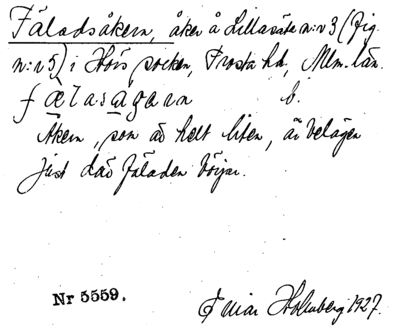 Fäladsåkern, åker å Lillasäte n:r 3 (Fig.
n:r 5) i Hörs socken, Frosta hd, Mlm. län.
fælasågarn b.
Åkern, som är helt liten, är belägen
just där fäladen börjar.
Nr 5559.
Einar Holmberg 1927.